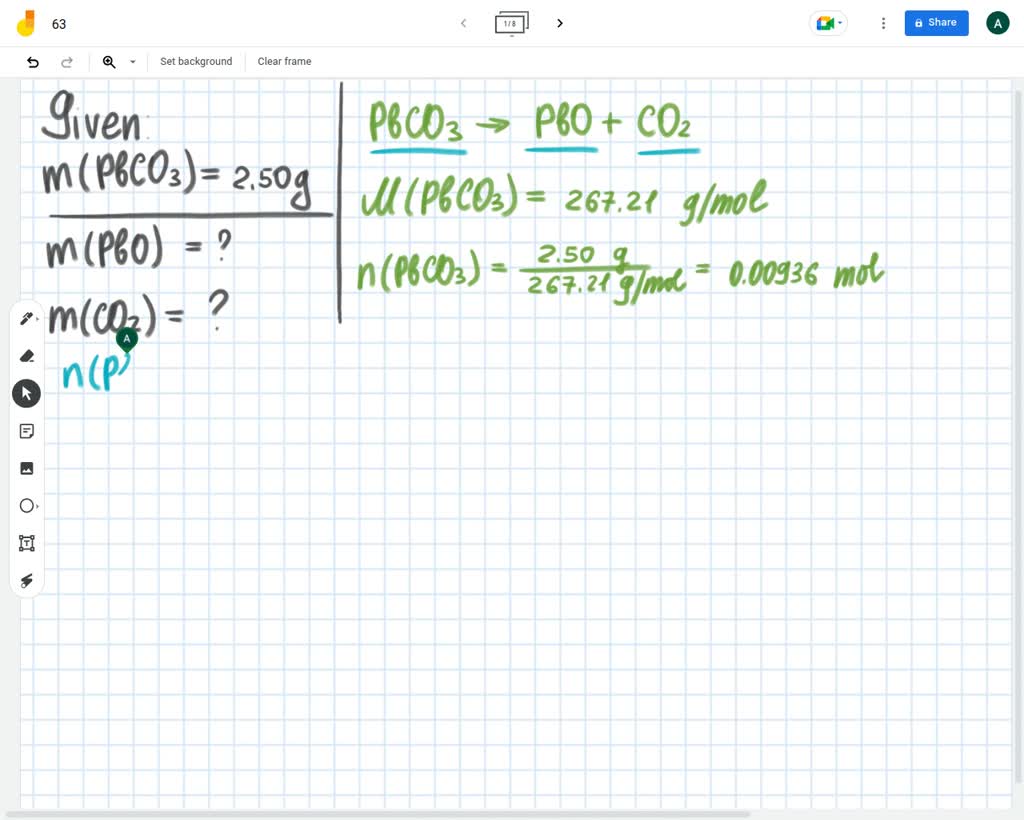 63
1/8
Share
A
Set background
Clear frame
Given:
m(PbCO₃) = 2.50g
m(PbO) = ?
m(CO₂) = ?
A
n(P
PbCO₃ → PbO + CO₂
M(PbCO₃) = 267.21 g/mol
n(PbCO₃) = 2.50 g / 267.21 g/mol = 0.00936 mol